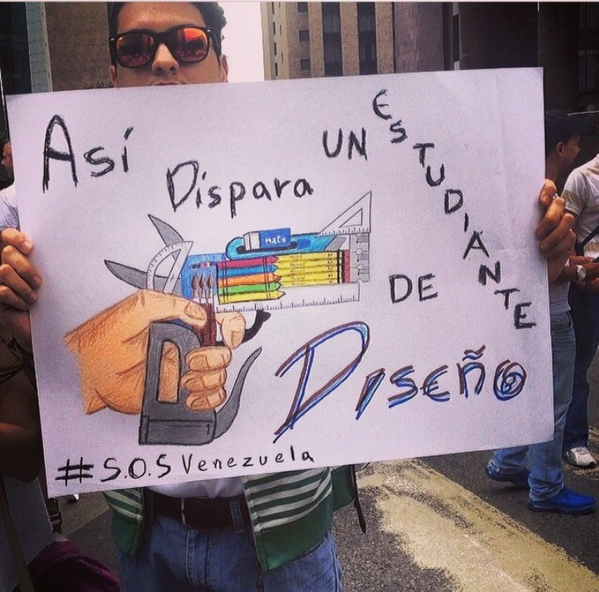 Así
Dispara
UN
ESTUDIANTE
DE
DISEÑO
#S.O.S Venezuela